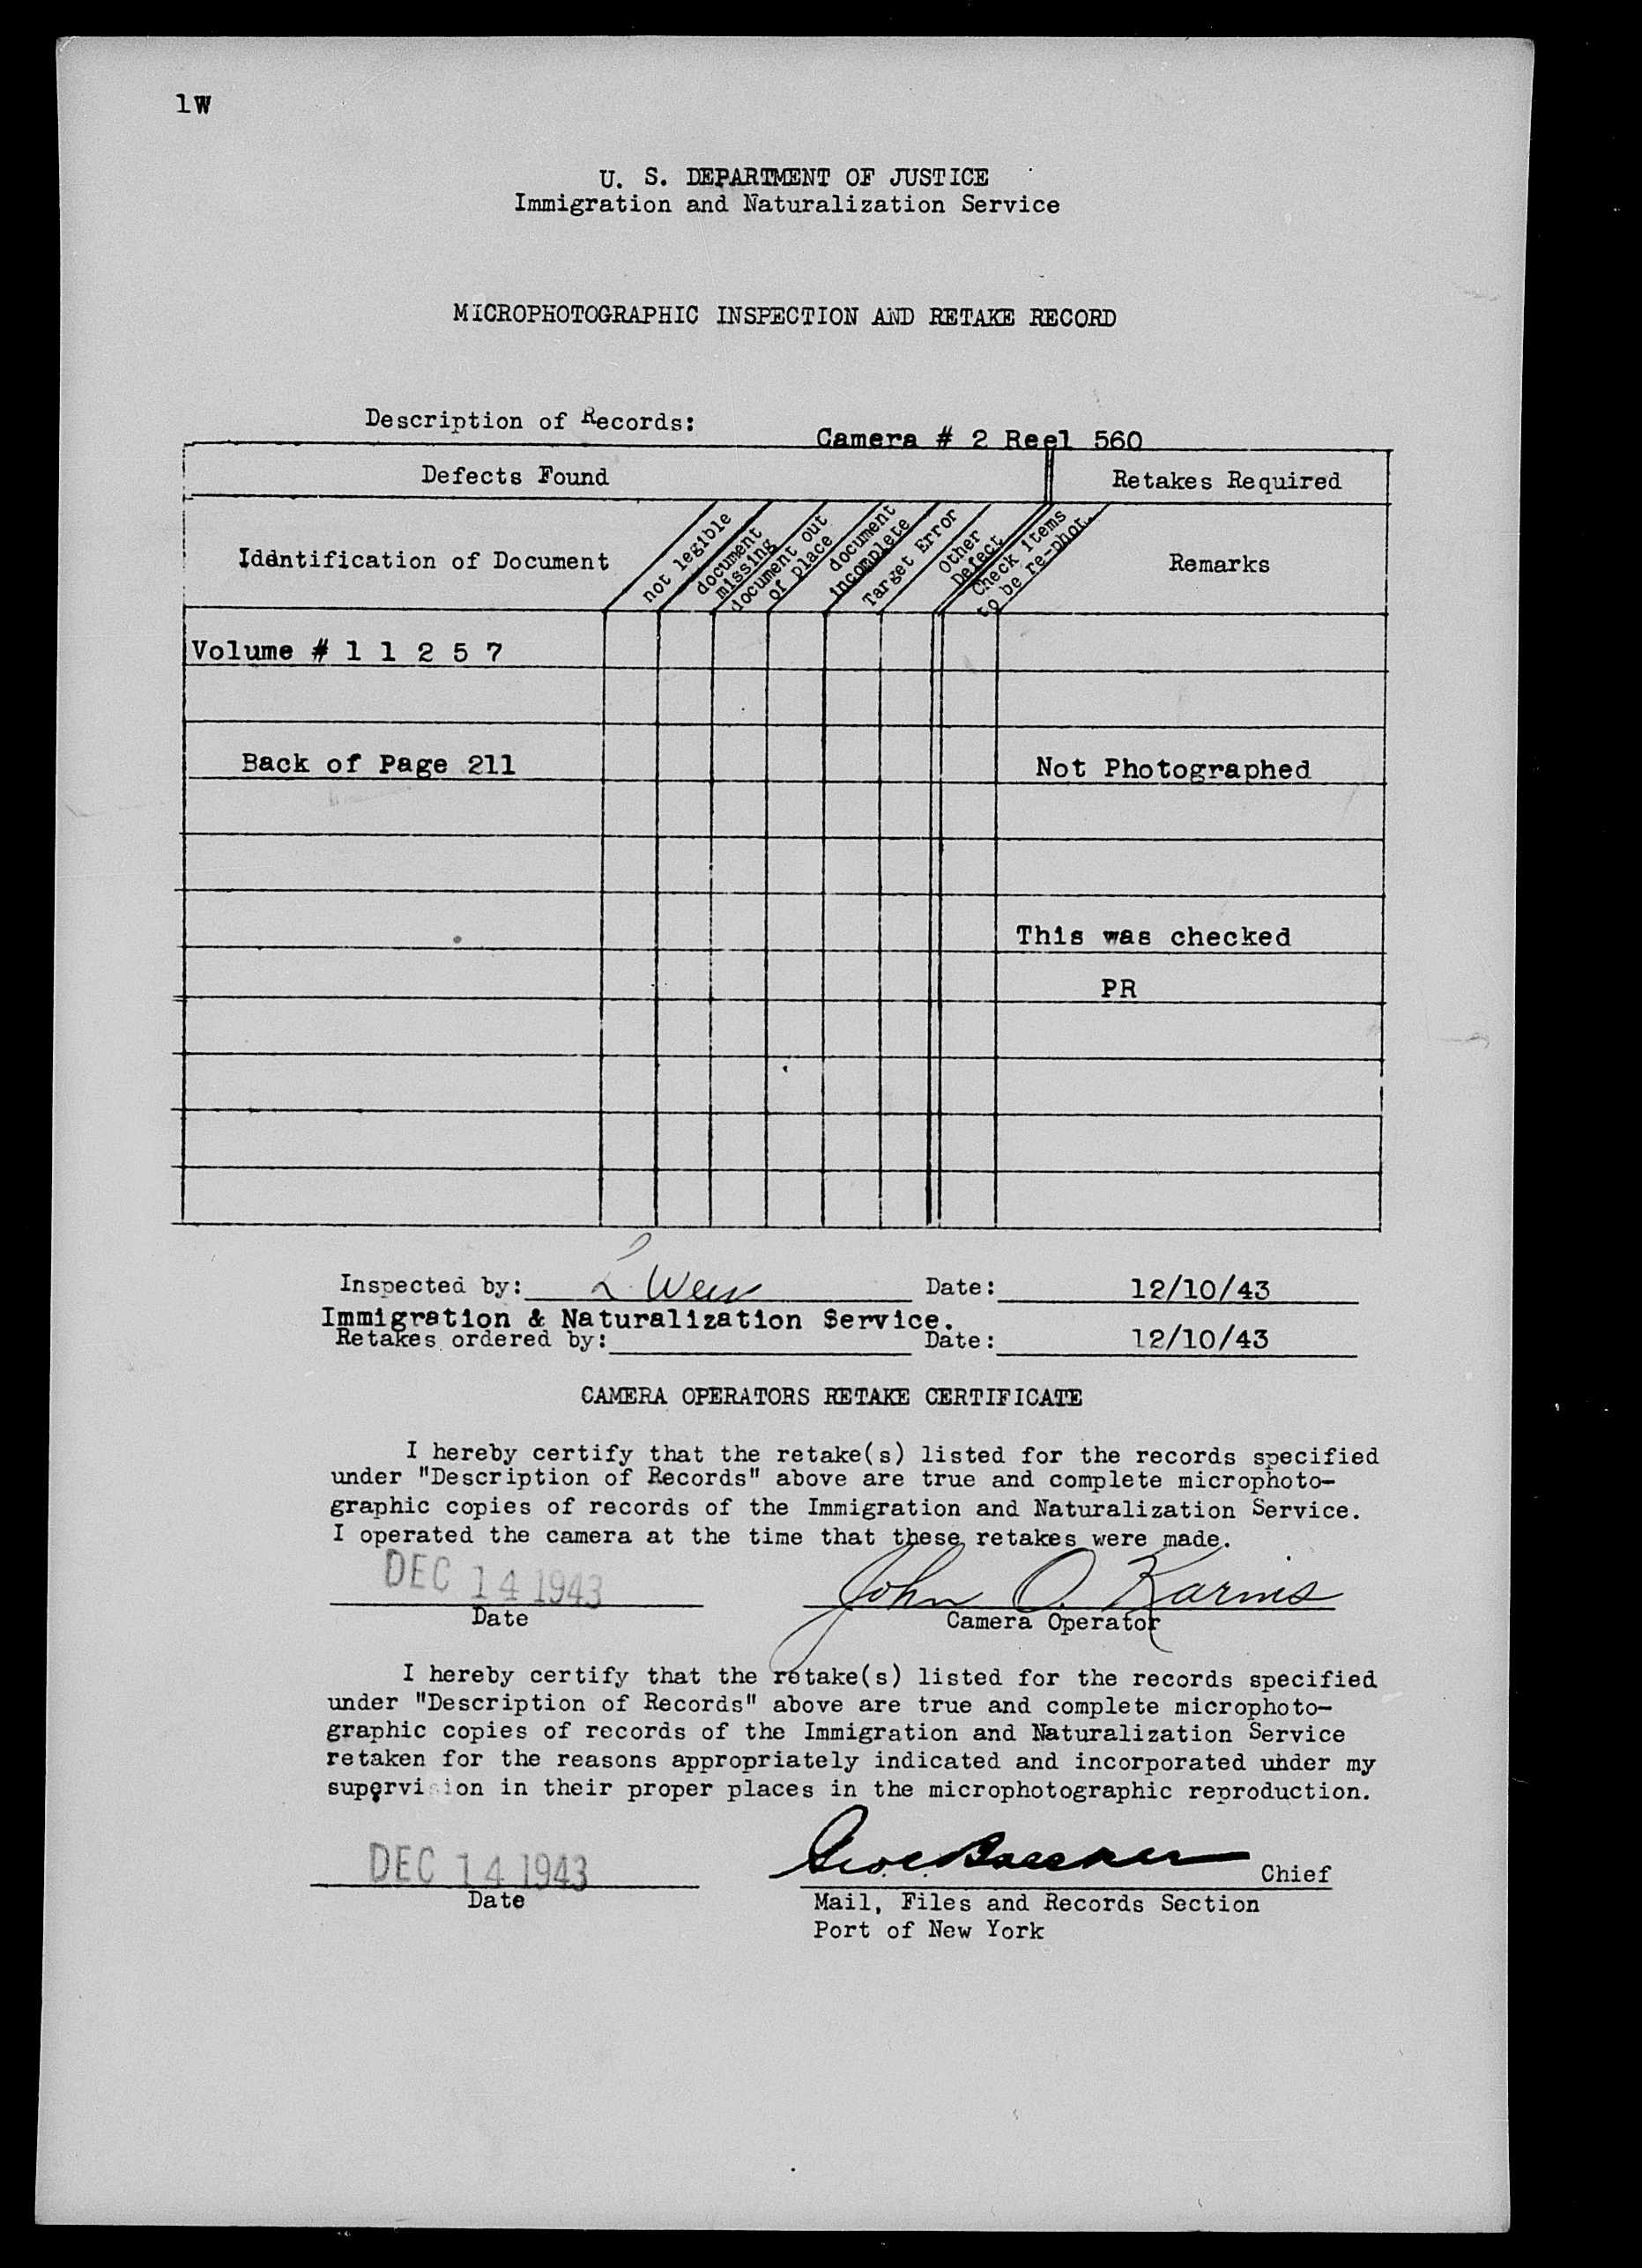 1W
U. S. DEPARTMENT OF JUSTICE
Immigration and Naturalization Service
MICROPHOTOGRAPHIC INSPECTION AND RETAKE RECORD
Description of Records:
Camera # 2 Reel 560
Defects Found
Retakes Required
Identification of Document
not legible
document missing
document out of place
document incomplete
Target Error
Other Defect
Check items to be re-phor.
Remarks
Volume # 1 1 2 5 7
Back of Page 211
Not Photographed
This was checked
PR
Inspected by: Date: 12/10/43
Immigration & Naturalization Service.
Retakes ordered by: Date: 12/10/43
CAMERA OPERATORS RETAKE CERTIFICATE
I hereby certify that the retake(s) listed for the records specified
under "Description of Records" above are true and complete microphoto-
graphic copies of records of the Immigration and Naturalization Service.
I operated the camera at the time that these retakes were made.
DEC 14 1943
John O. Karms
Date
Camera Operator
I hereby certify that the retake(s) listed for the records specified
under "Description of Records" above are true and complete microphoto-
graphic copies of records of the Immigration and Naturalization Service
retaken for the reasons appropriately indicated and incorporated under my
supervision in their proper places in the microphotographic reproduction.
DEC 14 1943
Chief
Date
Mail, Files and Records Section
Port of New York